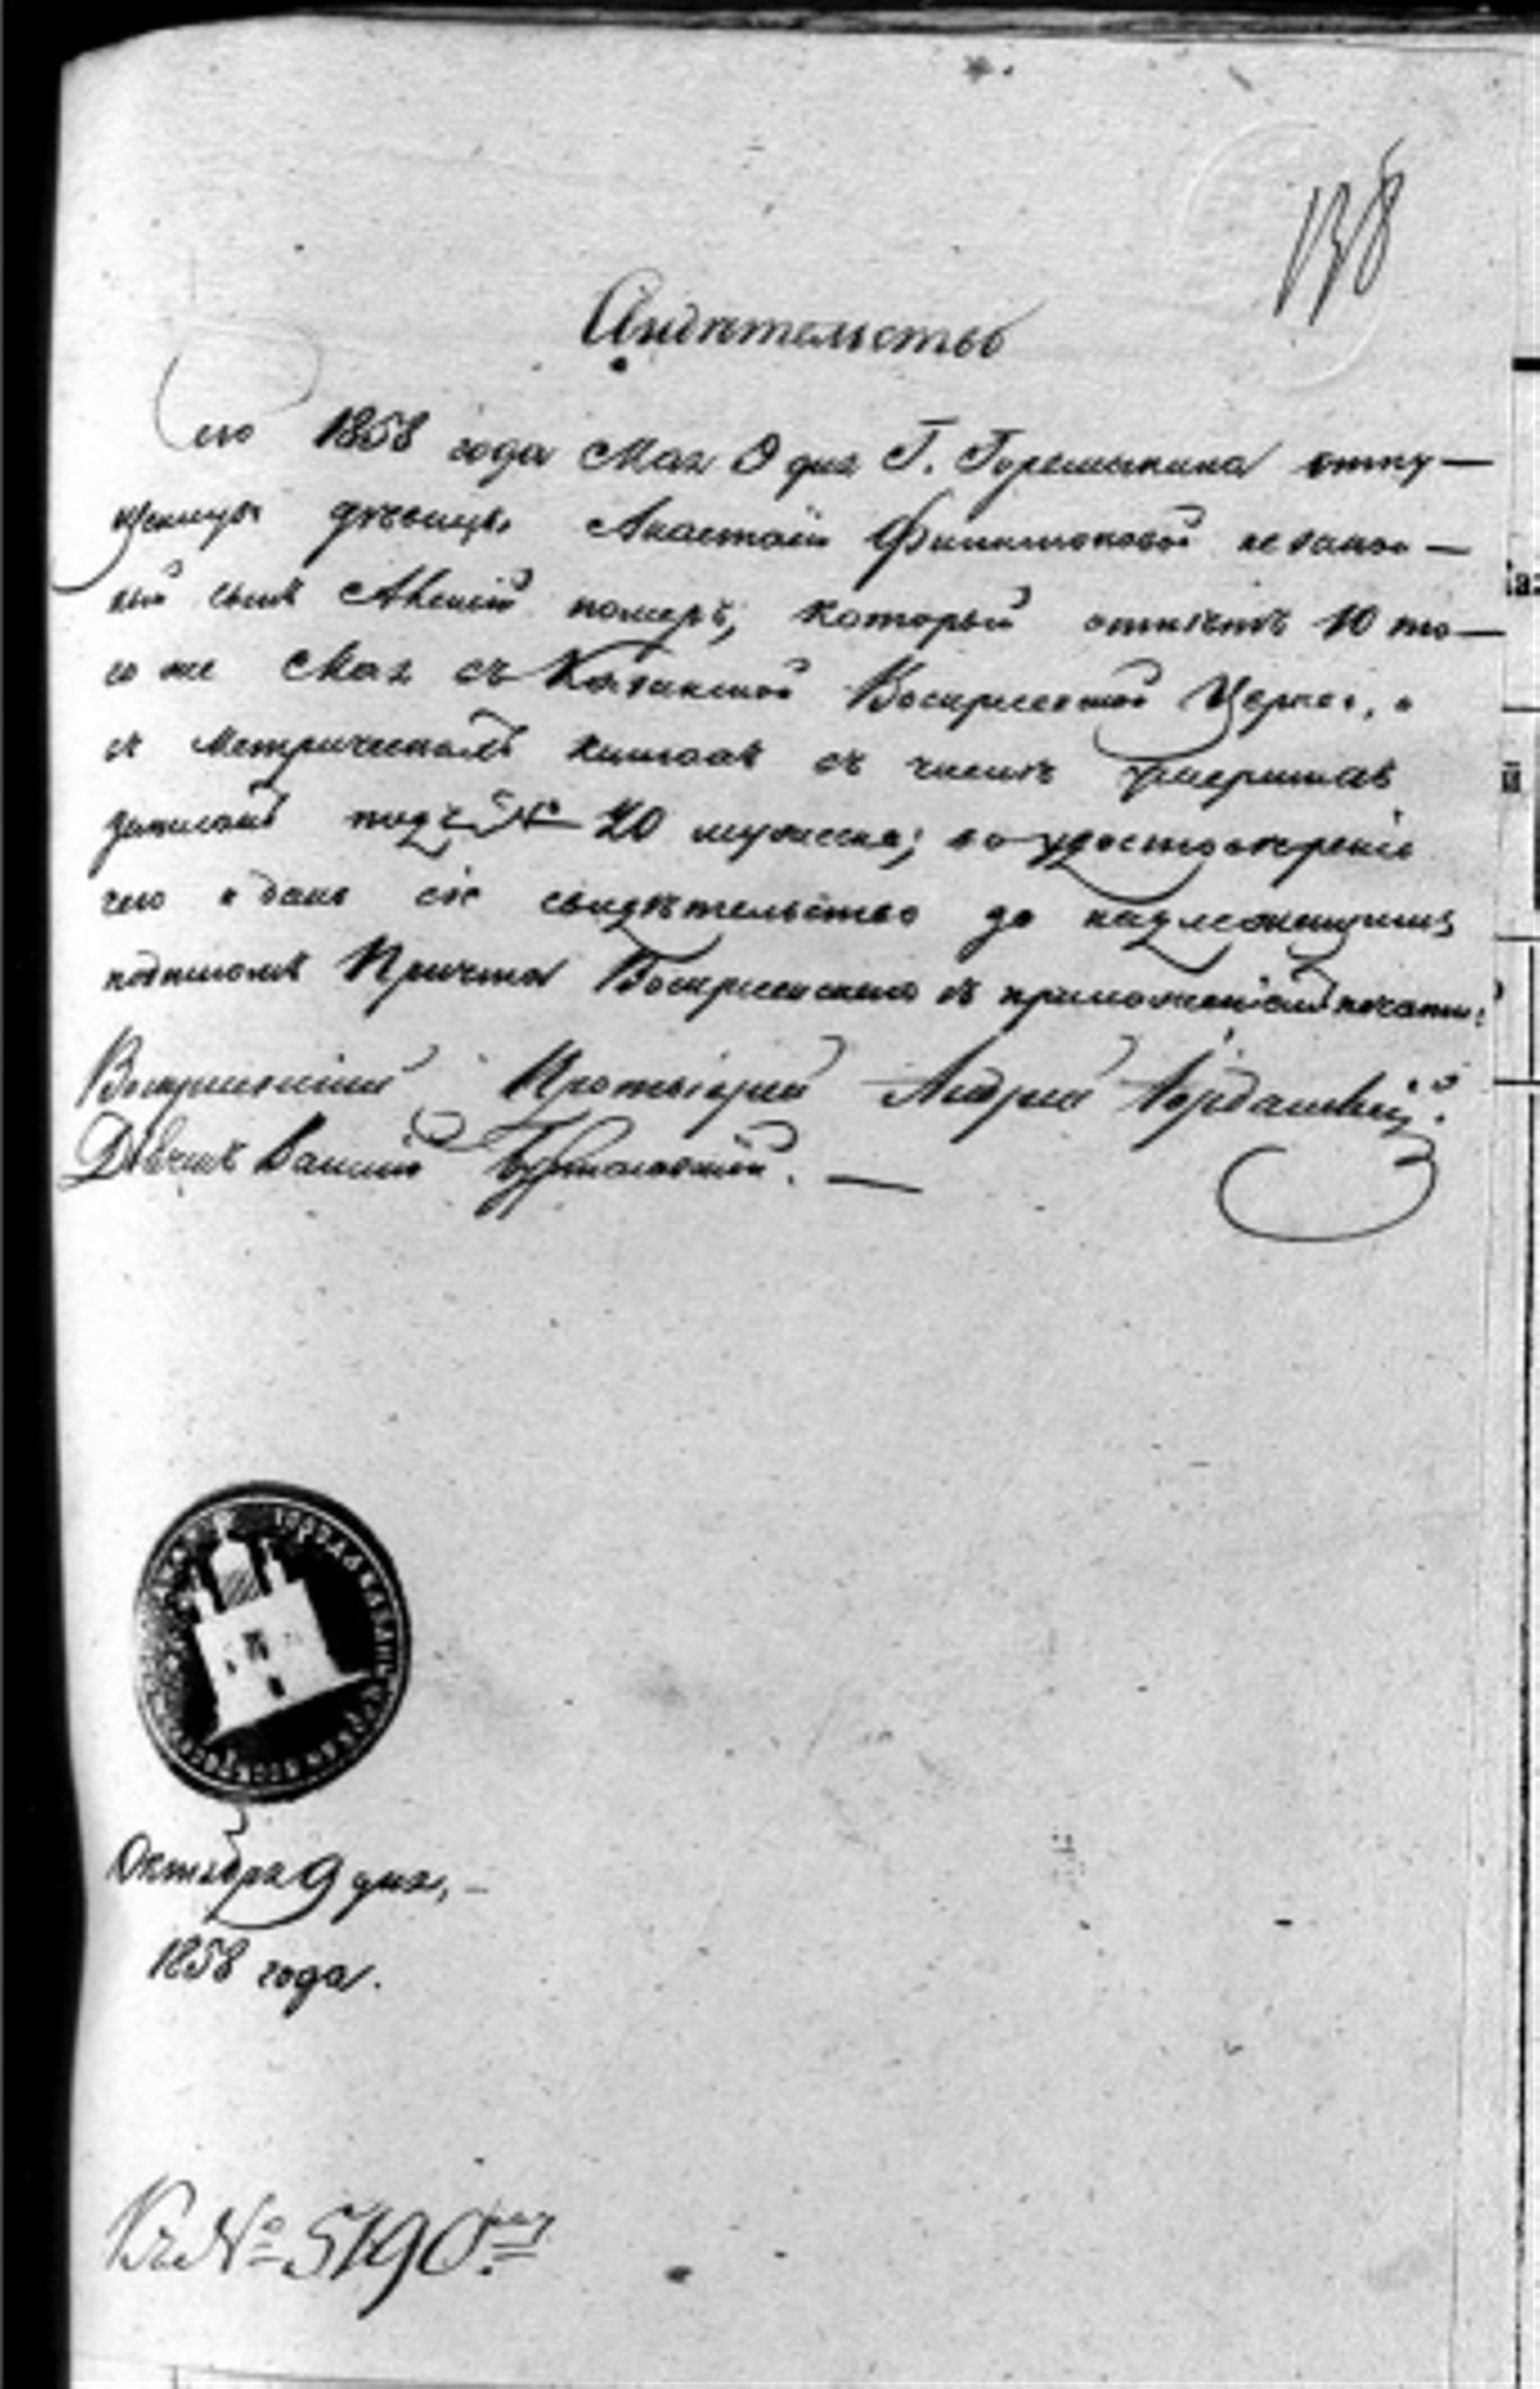 138
Свидѣтельство
Сего 1858 года Мая 9 дня Г. Горемыкина отпу-
щенницы дѣвицы Анастасіи Филимоновой незакон-
ный сынъ Алексій померъ, который отпѣтъ 10 то-
го же Мая въ Казанской Воскресенской Церкви, и
въ Метрическихъ книгахъ въ числѣ умершихъ
записанъ подъ № 20 мужеска; во удостовѣреніе
чего и дано сіе свидѣтельство за надлежащимъ
подписомъ Причта Воскресенскаго съ приложеніемъ печати:
Воскресенскій Протоіерей Андрей
Дьячекъ Василій
Октября 9 дня,
1858 года.
Къ № 5190